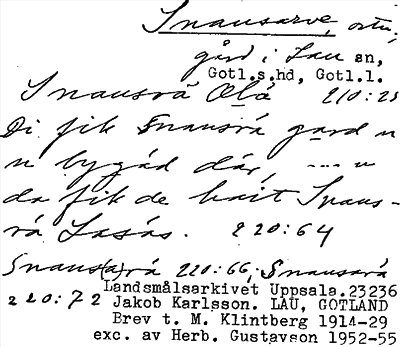 Snausarve, ortn;
gård i Lau sn,
Gotl.s.hd, Gotl.l.
Snausrå Olá 210:25
Di fik Snausrá gard n
n bygád där, --- n
da fik de hait Snaus-
rá Lasás. 220:64
Snaus(a)rá 220:66, Snausará
220:72
Landsmålsarkivet Uppsala.23236
Jakob Karlsson. LAU, GOTLAND
Brev t. M. Klintberg 1914-29
exc. av Herb. Gustavson 1952-55